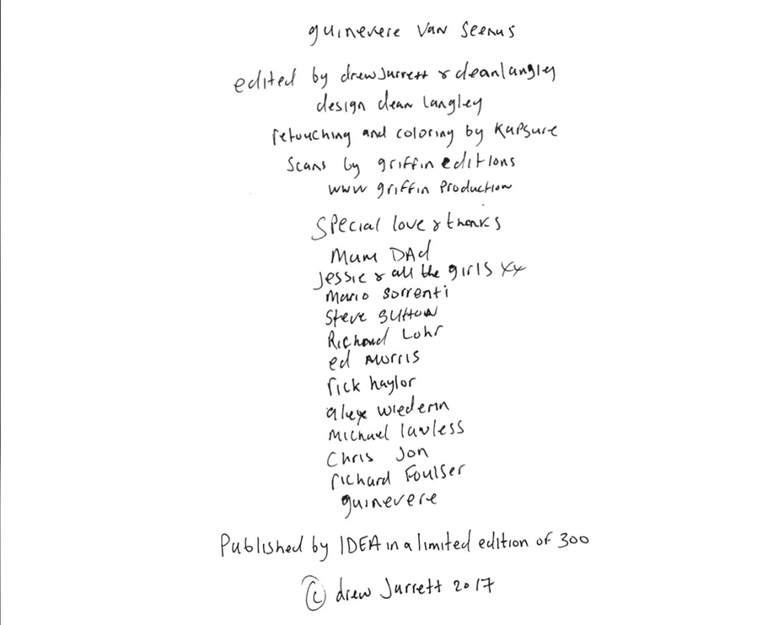 guinevere van seenus
edited by drew Jarrett & dean langley
design dean langley
retouching and coloring by Kapsure
Scans by griffin editions
www griffin Production
Special love & thanks
Mum DAd
Jessie & all the girls xx
Mario Sorrenti
Steve Sutton
Richard Lohr
ed Morris
rick haylor
alex wiederin
Michael lawless
Chris Jon
richard Foulser
guinevere
Published by IDEA in a limited edition of 300
© drew Jarrett 2017